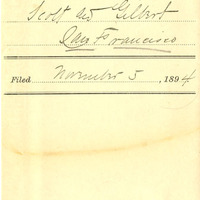 Scott and Gilbert
San Francisco
Filed November 5, 1894